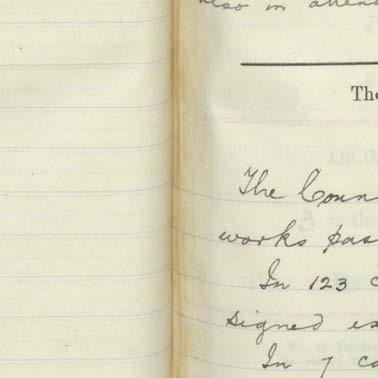 also in atten
The
The Coun
works pas
In 123 c
signed ex
In 7 ca